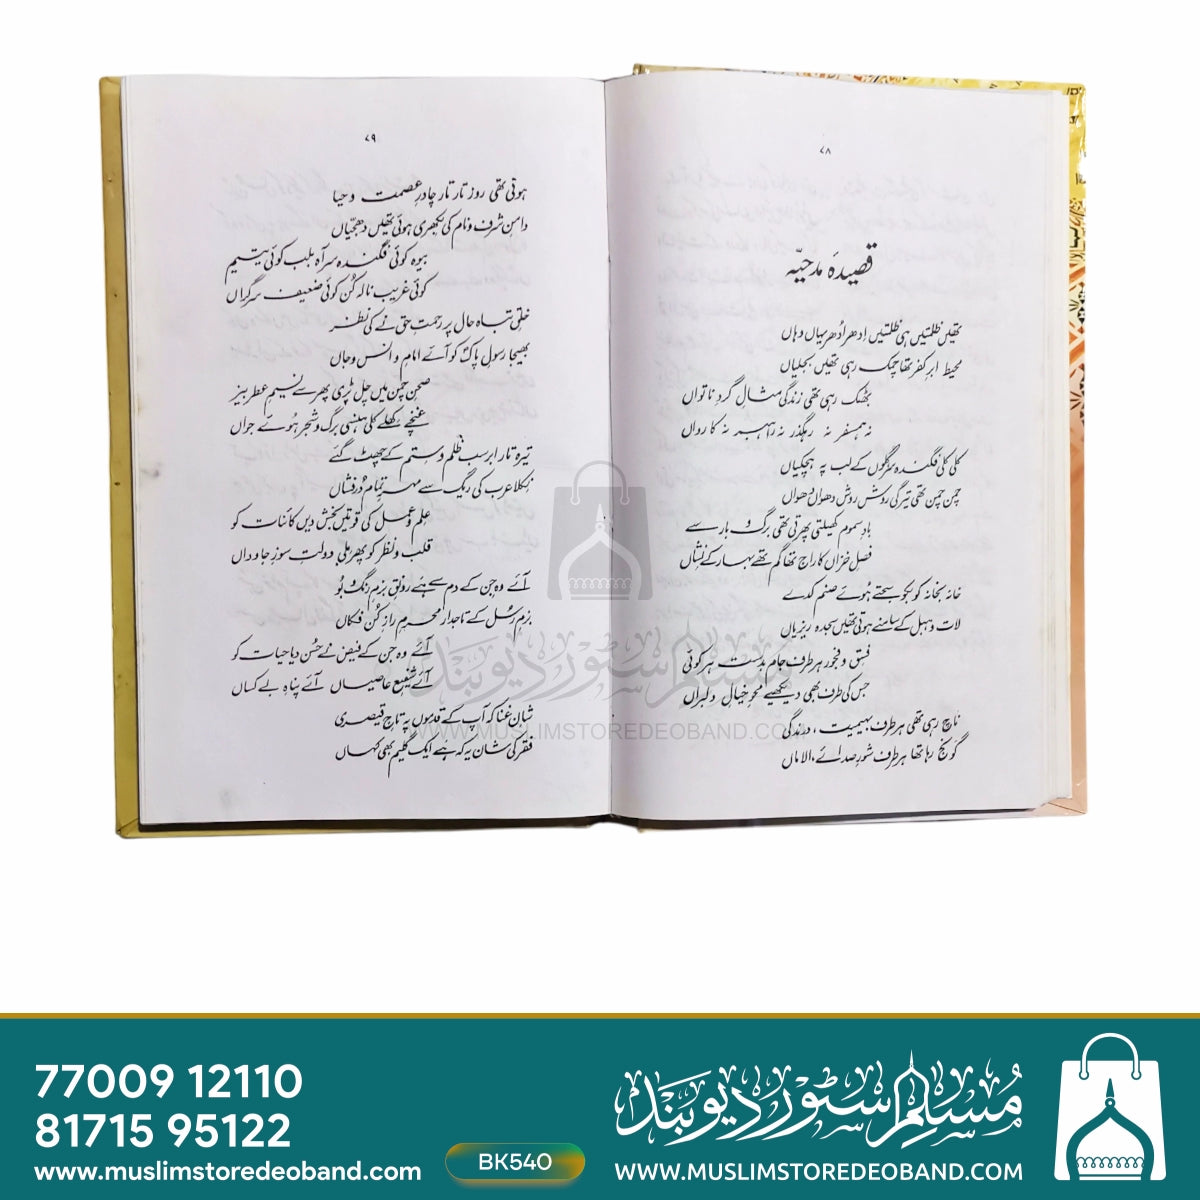 ۷۸
قصیدہ مدحیّہ
تھیں ظلمتیں ہی ظلمتیں اِدھر اُدھر یہاں وہاں
محیط ابرِ کفر تھا چمک رہی تھیں بجلیاں
بھٹک رہی تھی زندگی مثالِ گردِ ناتواں
نہ ہمسفر نہ رہگذر نہ راہبر نہ کارواں
کلی کلی فگندہ سر گلوں کے لب پہ ہچکیاں
چمن چمن تھی تیرگی روش روش دھواں دھواں
بادِ سموم کھیلتی پھرتی تھی برگ و بار سے
فصلِ خزاں کا راج تھا گم تھے بہار کے نشاں
خانہ بخانہ کو بکو سجتے ہوئے صنم کدے
لات و ہبل کے سامنے ہوتی تھیں سجدہ ریزیاں
فسق و فجور ہر طرف جام بدست ہر کوئی
جس کی طرف بھی دیکھیے محوِ خیالِ دلبراں
ناچ رہی تھی ہر طرف بہیمیت ، درندگی
گونج رہا تھا ہر طرف شورِ صدائے، الاماں
۷۹
ہوتی تھی روز تار تار چادرِ عصمت و حیا
دامنِ شرف و نام کی بکھری ہوئی تھیں دھجّیاں
بیوہ کوئی فگندہ سر آہ بلب کوئی یتیم
کوئی غریب نالہ کُن کوئی ضعیف سرگراں
خلقِ تباہ حال پر رحمتِ حق نے کی نظر
بھیجا رسولِ پاک کو آئے امامِ و انس و جاں
صحنِ چمن میں چل پڑی پھر سے نسیمِ عطر بیز
غنچے کھلے کلی ہنسی برگ و شجر ہوئے جواں
تیرہ تار ابر سب ظلم و ستم کے چھٹ گئے
نکلا عرب کی ریگ سے مہرِ تمام دُرفشاں
علم و عمل کی قوتیں بخش دیں کائنات کو
قلب و نظر کو پھر ملی دولتِ سوزِ جاوداں
آئے وہ جن کے دم سے ہے رونقِ بزمِ رنگ و بُو
بزمِ رُسل کے تاجدار محرمِ رازِ کُن فکاں
آئے وہ جن کے فیض نے حُسن دیا حیات کو
آئے شفیعِ عاصیاں آئے پناہِ بے کساں
شانِ غنا کہ آپ کے قدموں پہ تاجِ قیصری
فقر کی شان یہ کہ ہے ایک گلیم بھی گراں
مسلم سٹور دیوبند
WWW.MUSLIMSTOREDEOBAND.COM
77009 12110
81715 95122
www.muslimstoredeoband.com
BK540
مُسلم سٹور دیوبند
WWW.MUSLIMSTOREDEOBAND.COM